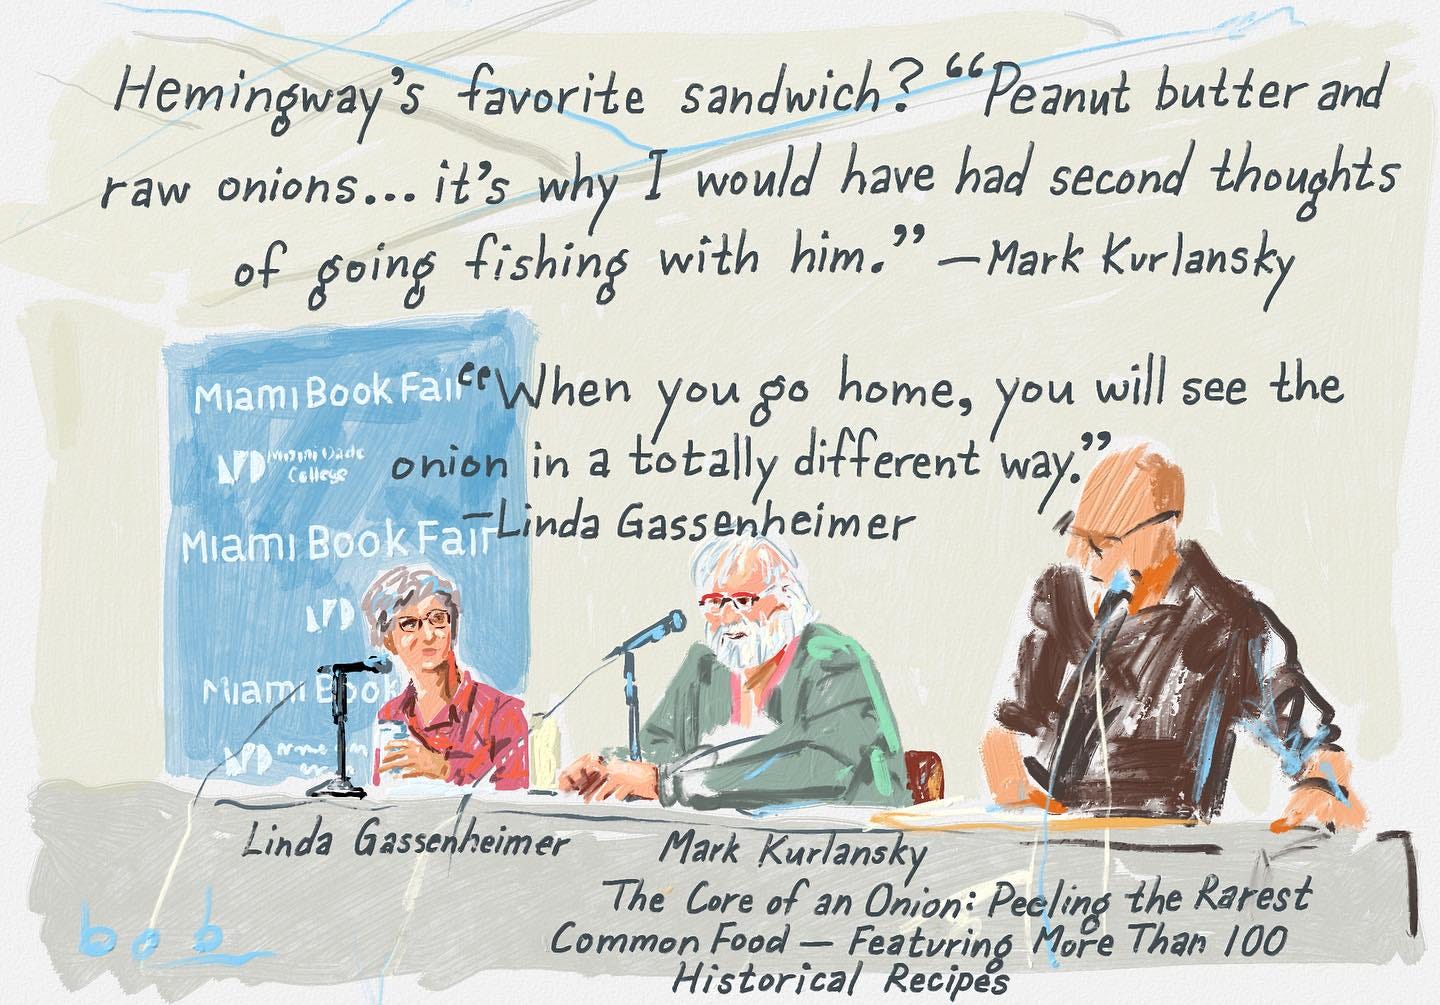 Hemingway's favorite sandwich? "Peanut butter and
raw onions... it's why I would have had second thoughts
of going fishing with him." —Mark Kurlansky
"When you go home, you will see the
onion in a totally different way."
—Linda Gassenheimer
Miami Book Fair
Miami Dade
College
Miami Book Fair
Miami Book
Linda Gassenheimer
Mark Kurlansky
The Core of an Onion: Peeling the Rarest
Common Food — Featuring More Than 100
Historical Recipes
bob